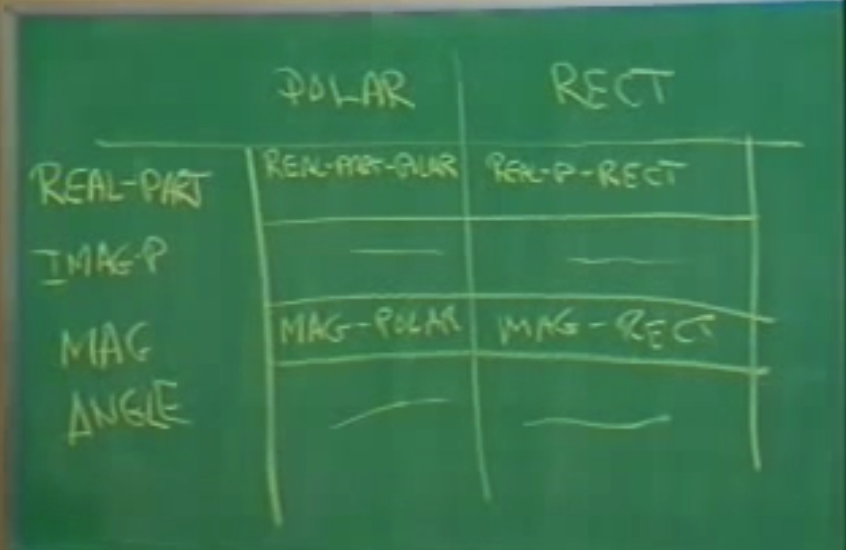 POLAR RECT
REAL-PART REAL-PART-POLAR REAL-P-RECT
IMAG-P
MAG MAG-POLAR MAG-RECT
ANGLE